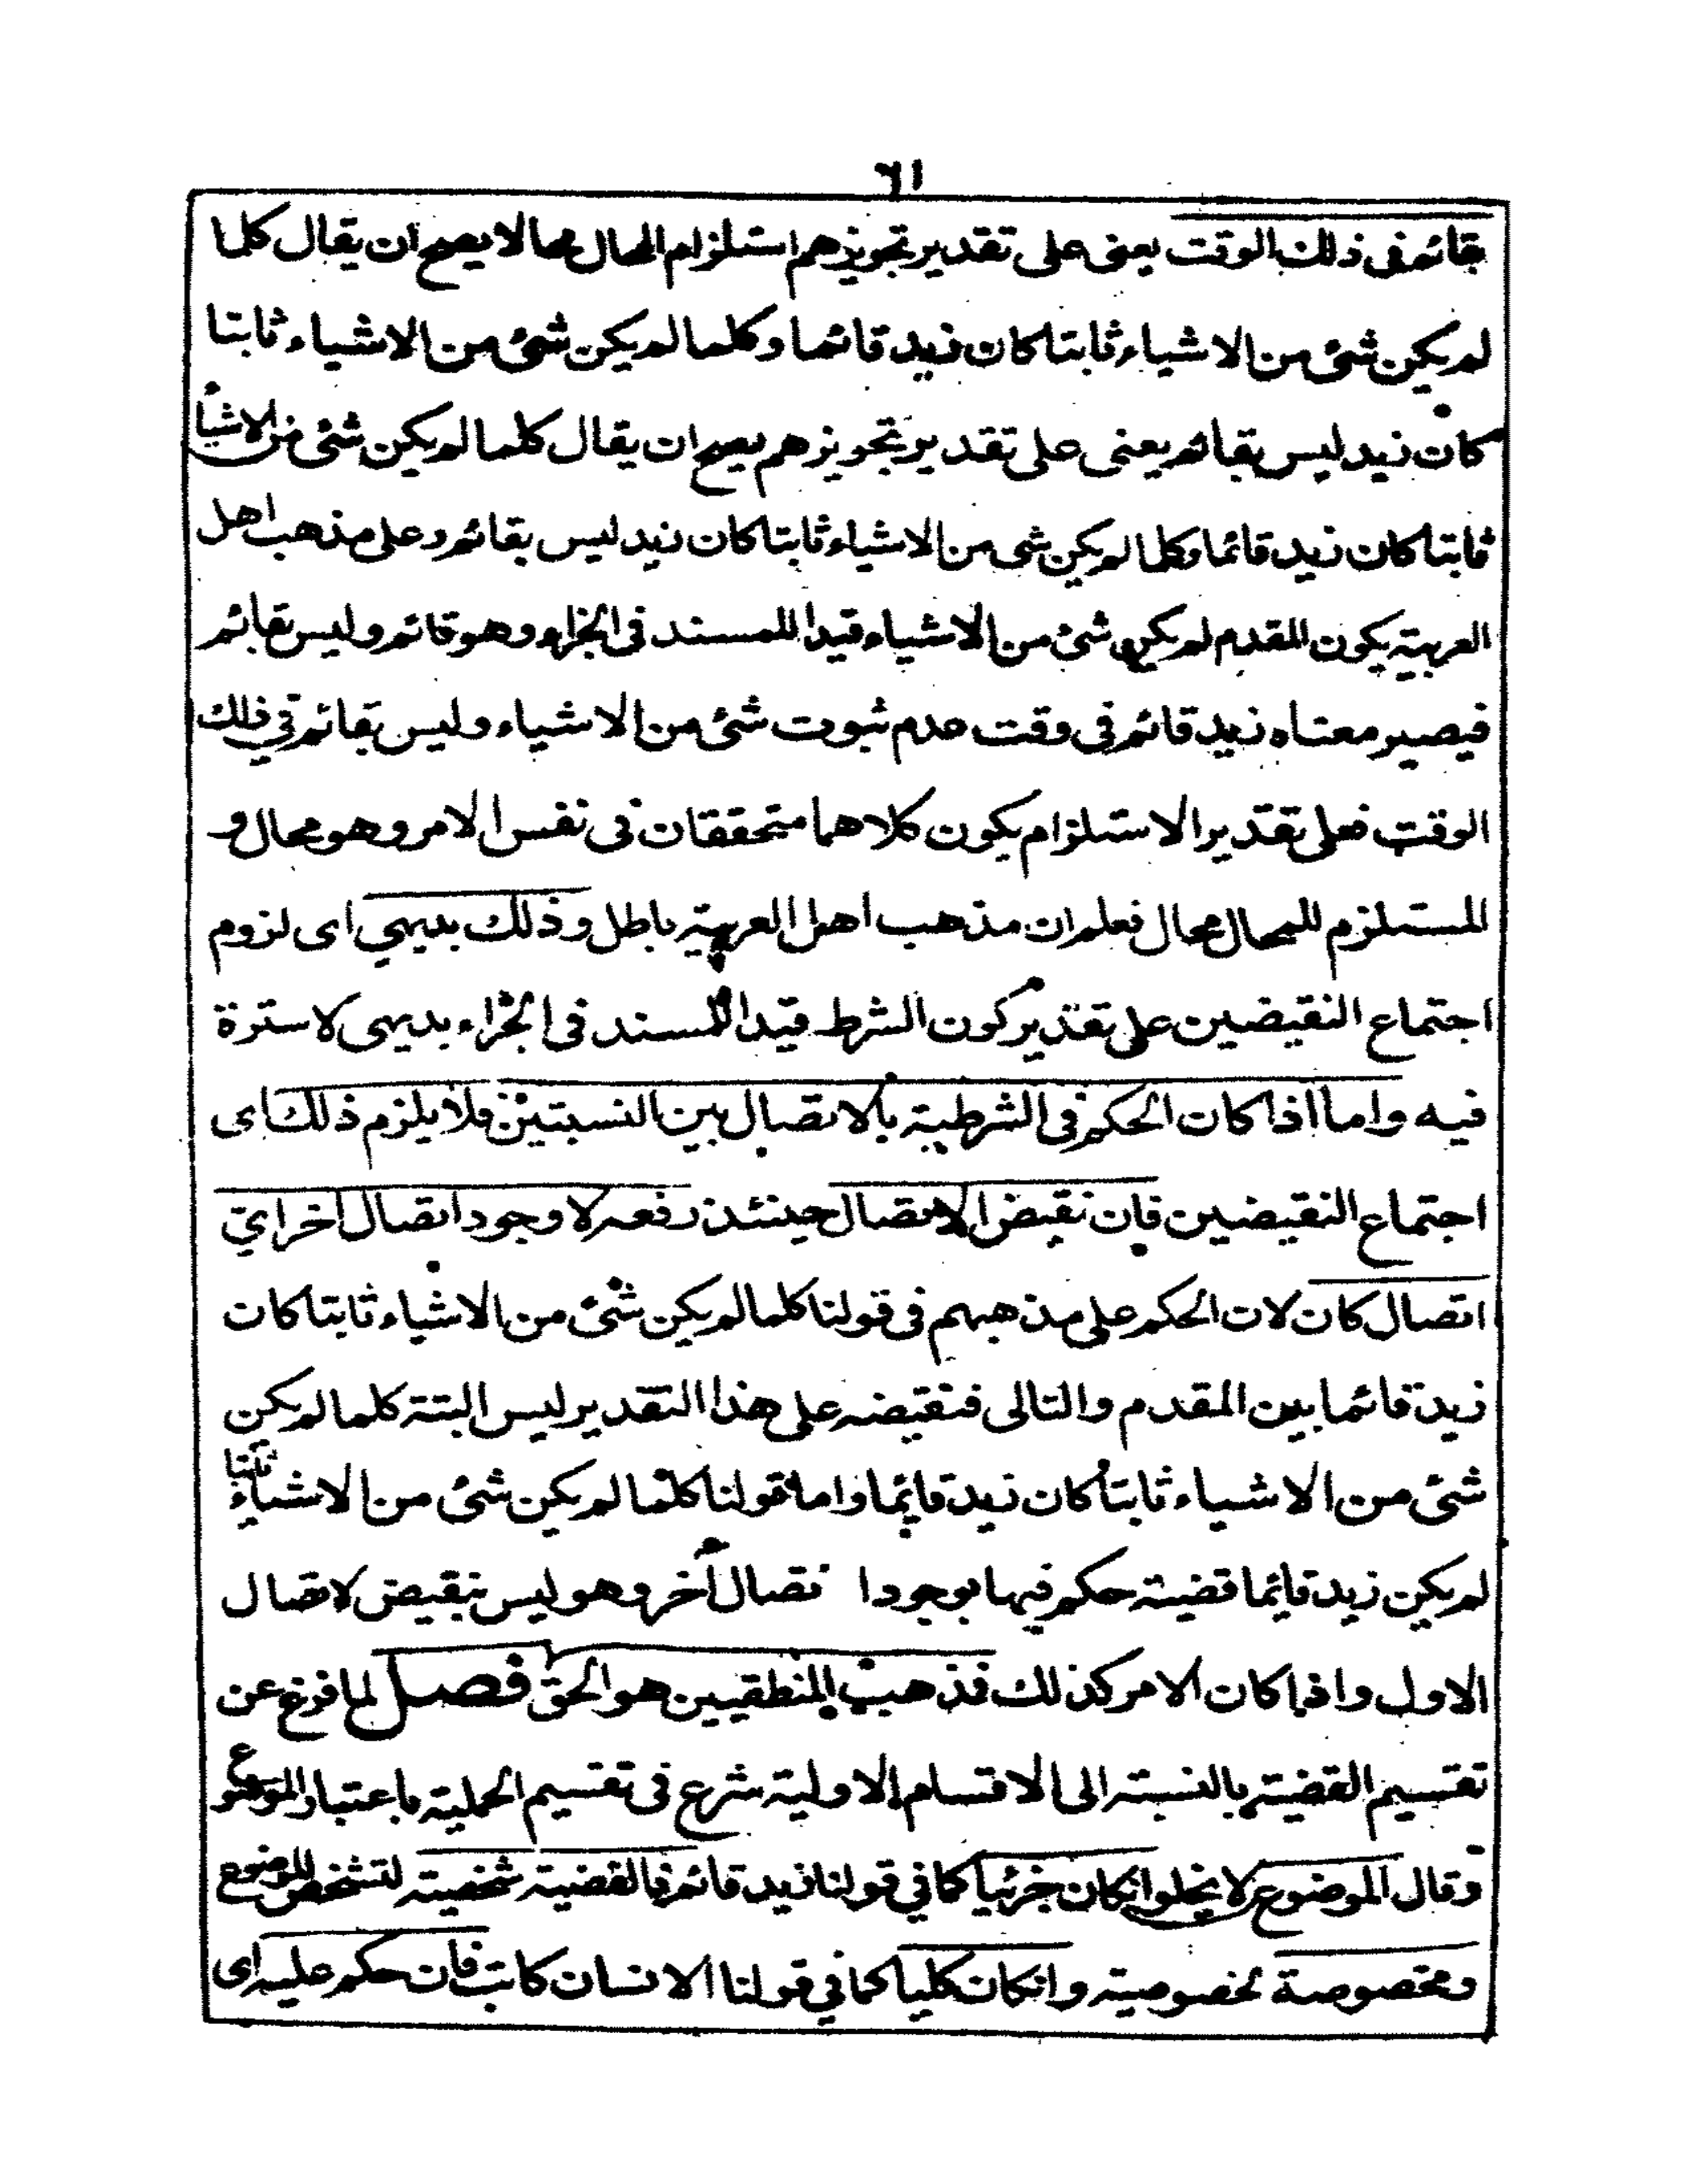 ٦١
بقائم فى ذلك الوقت يعنى على تقدير تجويزهم استلزام المحال محالا يصح ان يقال كلما
لم يكن شئ من الاشياء ثابتا كان زيد قائما وكلما لم يكن شئ من الاشياء ثابتا
كان زيد ليس بقائم يعنى على تقدير تجويزهم يصح ان يقال كلما لم يكن شئ من الاشياء
ثابتا كان زيد قائما وكلما لم يكن شى من الاشياء ثابتا كان زيد ليس بقائم وعلى مذهب اهل
العربية يكون المقدم لم يكن شئ من الاشياء قيدا للمسند فى الجزاء وهو قائم وليس بقائم
فيصير معناه زيد قائم فى وقت عدم ثبوت شئ من الاشياء وليس بقائم في ذلك
الوقت فعلى تقدير الاستلزام يكون كلاهما متحققان فى نفس الامر وهو محال و
المستلزم للمحال محال فعلم ان مذهب اهل العربية باطل وذلك بديهي اى لزوم
اجتماع النقيضين على تقدير كون الشرط قيدا للمسند فى الجزاء بديهى لا سترة
فيه واما اذا كان الحكم فى الشرطية بالاتصال بين النسبتين فلا يلزم ذلك اى
اجتماع النقيضين فان نقيض الاتصال حينئذ رفعه لا وجود اتصال اخر اي
اتصال كان لان الحكم على مذهبهم فى قولنا كلما لم يكن شئ من الاشياء ثابتا كان
زيد قائما بين المقدم والتالى فنقيضه على هذا التقدير ليس البتة كلما لم يكن
شئ من الاشياء ثابتا كان زيد قايما واما قولنا كلما لم يكن شئ من الاشياء ثابتا
لم يكن زيد قايما قضية حكم فيها بوجود ا تصال آخر وهو ليس بنقيض لاتصال
الاول واذا كان الامر كذلك فمذهب المنطقيين هو الحق فصل لما فرغ عن
تقسيم القضية بالنسبة الى الاقسام الاولية شرع فى تقسيم الحملية باعتبار الموضوع
وقال الموضوع لا يخلوا انكان جزئيا كما في قولنا زيد قائم فالقضية شخصية لتشخص الموضوع
ومخصوصة لخصوصيته وانكان كليا كما في قولنا الانسان كاتب فان حكم عليه اى